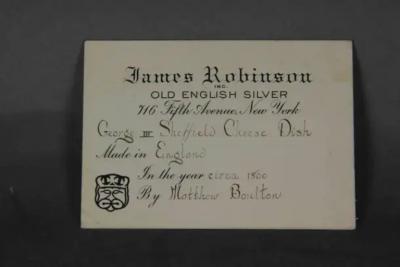 James Robinson
INC.
OLD ENGLISH SILVER
716 Fifth Avenue, New York
George III Sheffield Cheese Dish
Made in England
In the year circa 1800
By Matthow Boulton